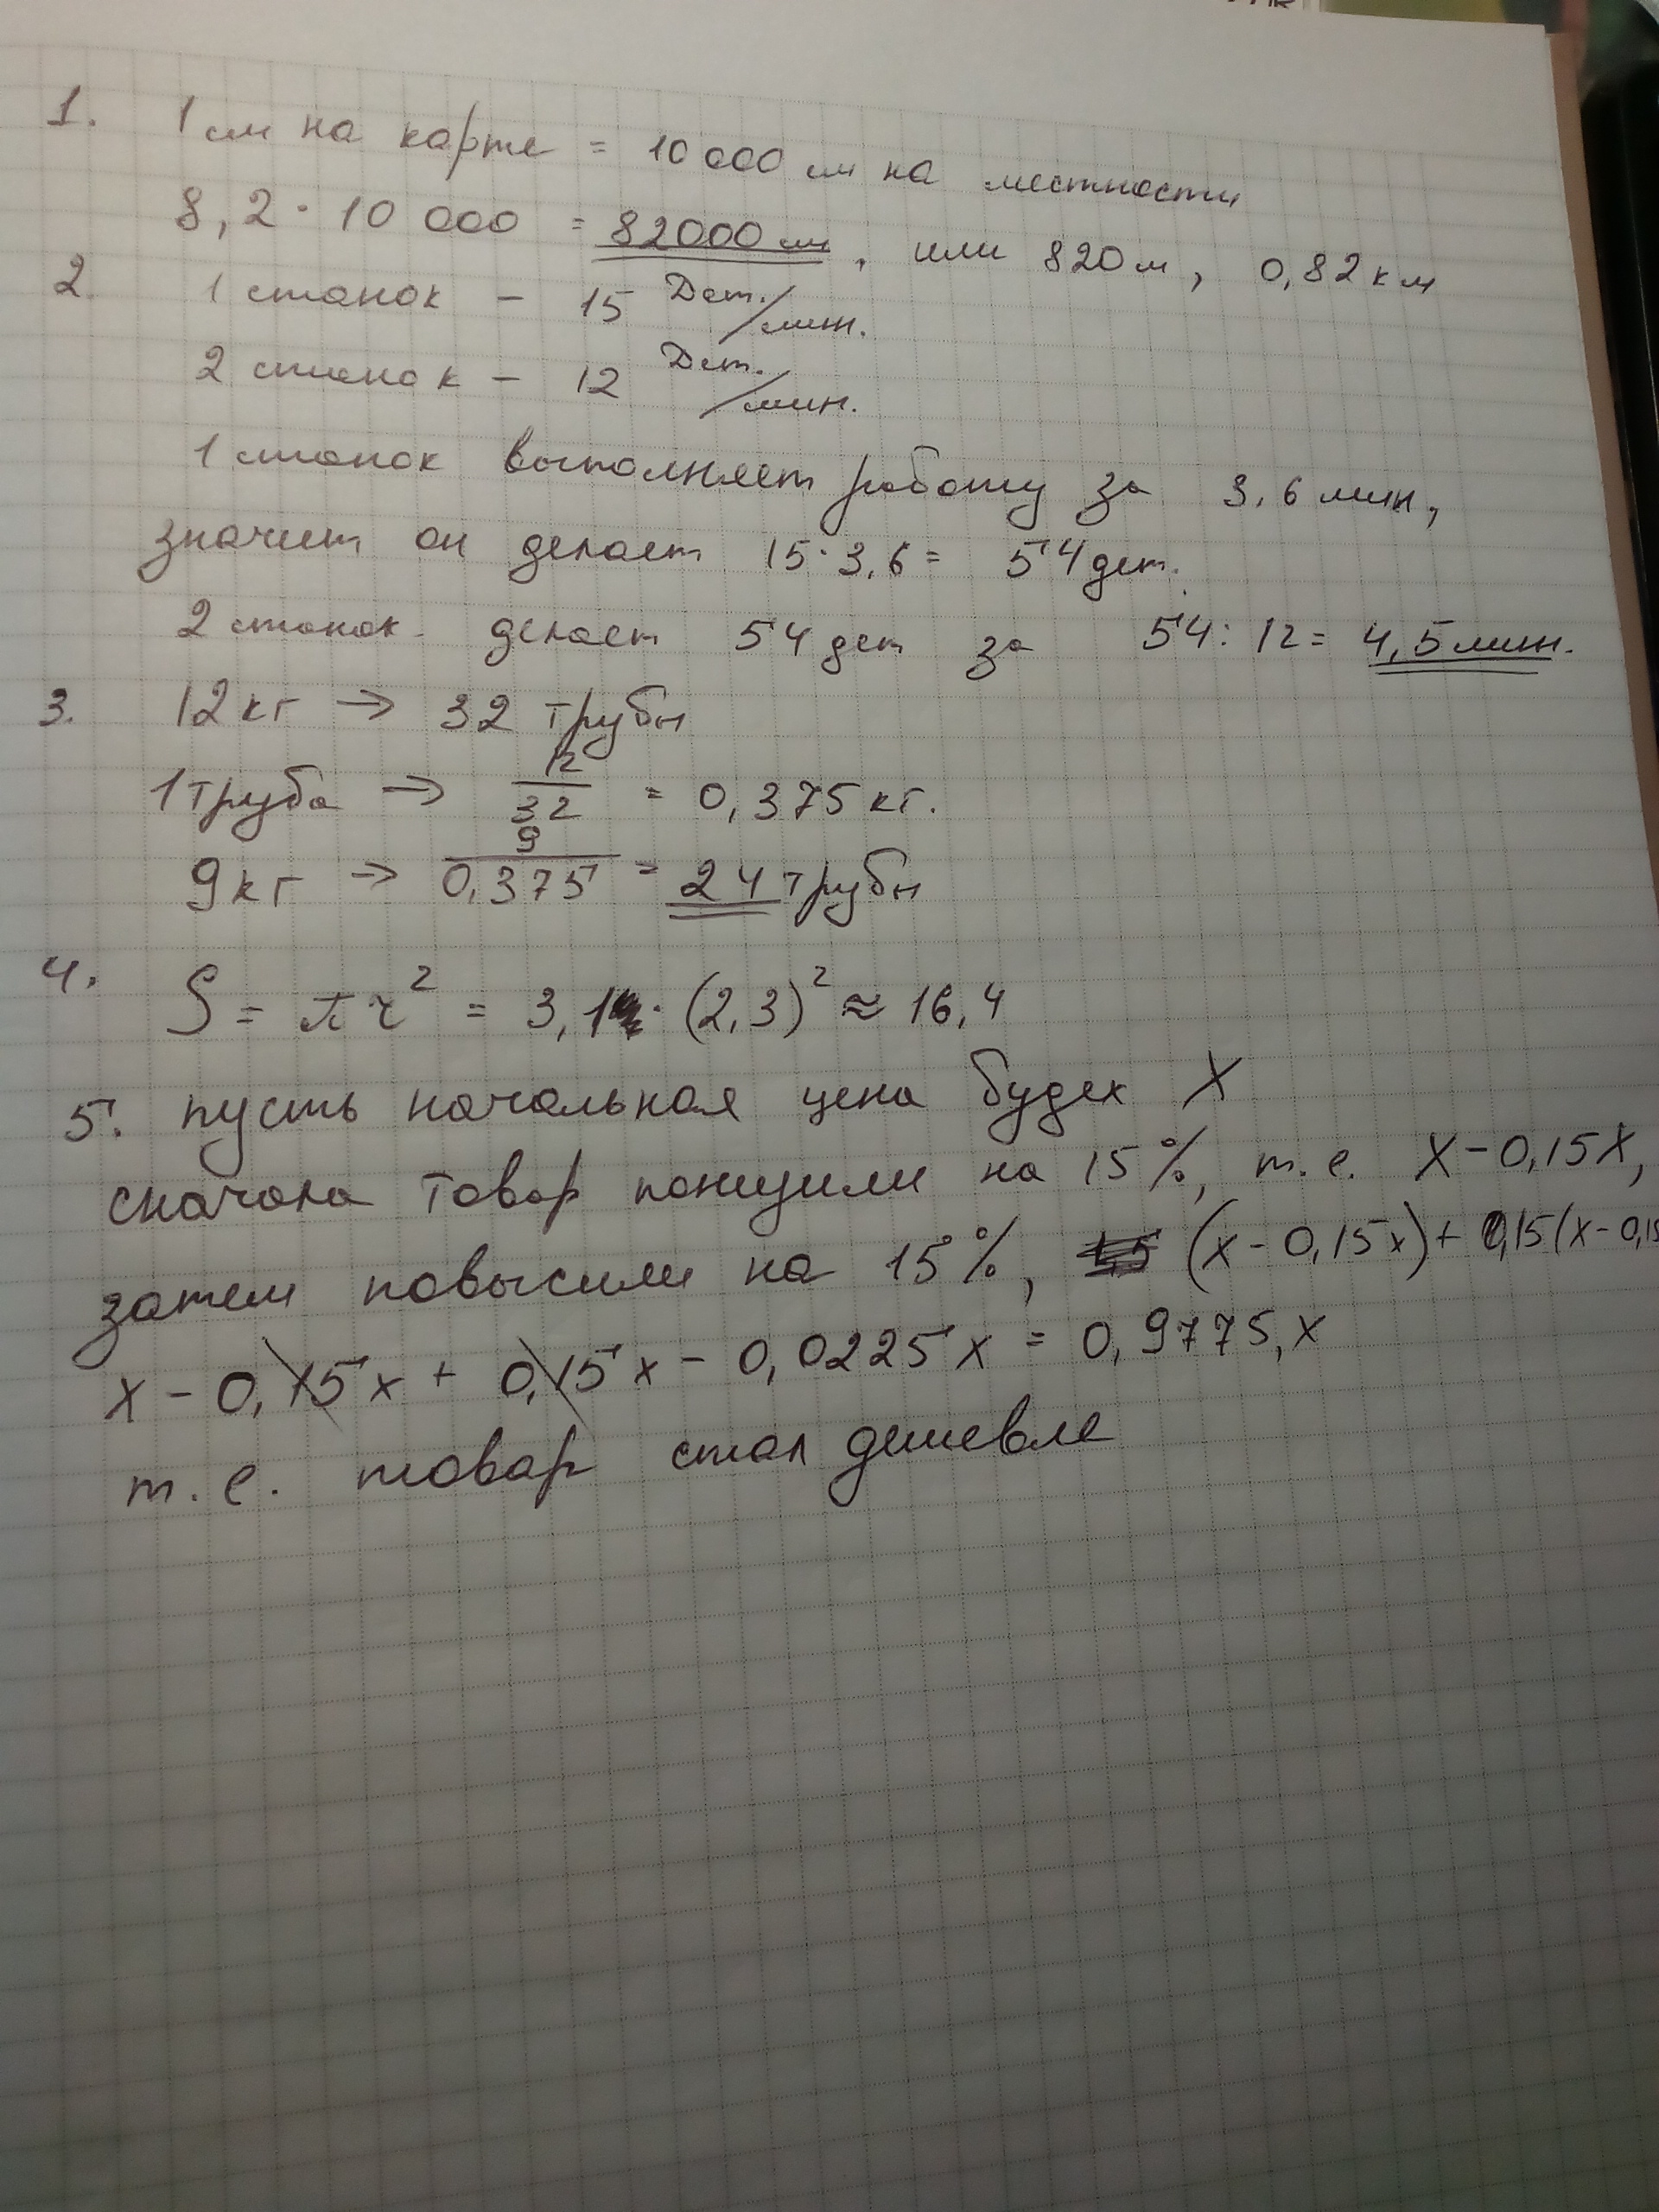 1. 1 см на карте = 10 000 см на местности
8,2 · 10 000 = 82000 см, или 820 м, 0,82 км
2. 1 станок – 15 Дет./мин.
2 станок – 12 Дет./мин.
1 станок выполняет работу за 3,6 мин,
значит он делает 15·3,6 = 54 дет.
2 станок делает 54 дет за 54 : 12 = 4,5 мин.
3. 12 кг → 32 трубы
1 труба → 12/32 = 0,375 кг.
9 кг → 9/0,375 = 24 трубы
4. S = πr² = 3,1 · (2,3)² ≈ 16,4
5. пусть начальная цена будех X
сначала товар понизили на 15%, т.е. X – 0,15X,
затем повысили на 15%, (x – 0,15x) + 0,15(x – 0,15
x – 0,15x + 0,15x – 0,0225x = 0,9775,x
т.е. товар стал дешевле